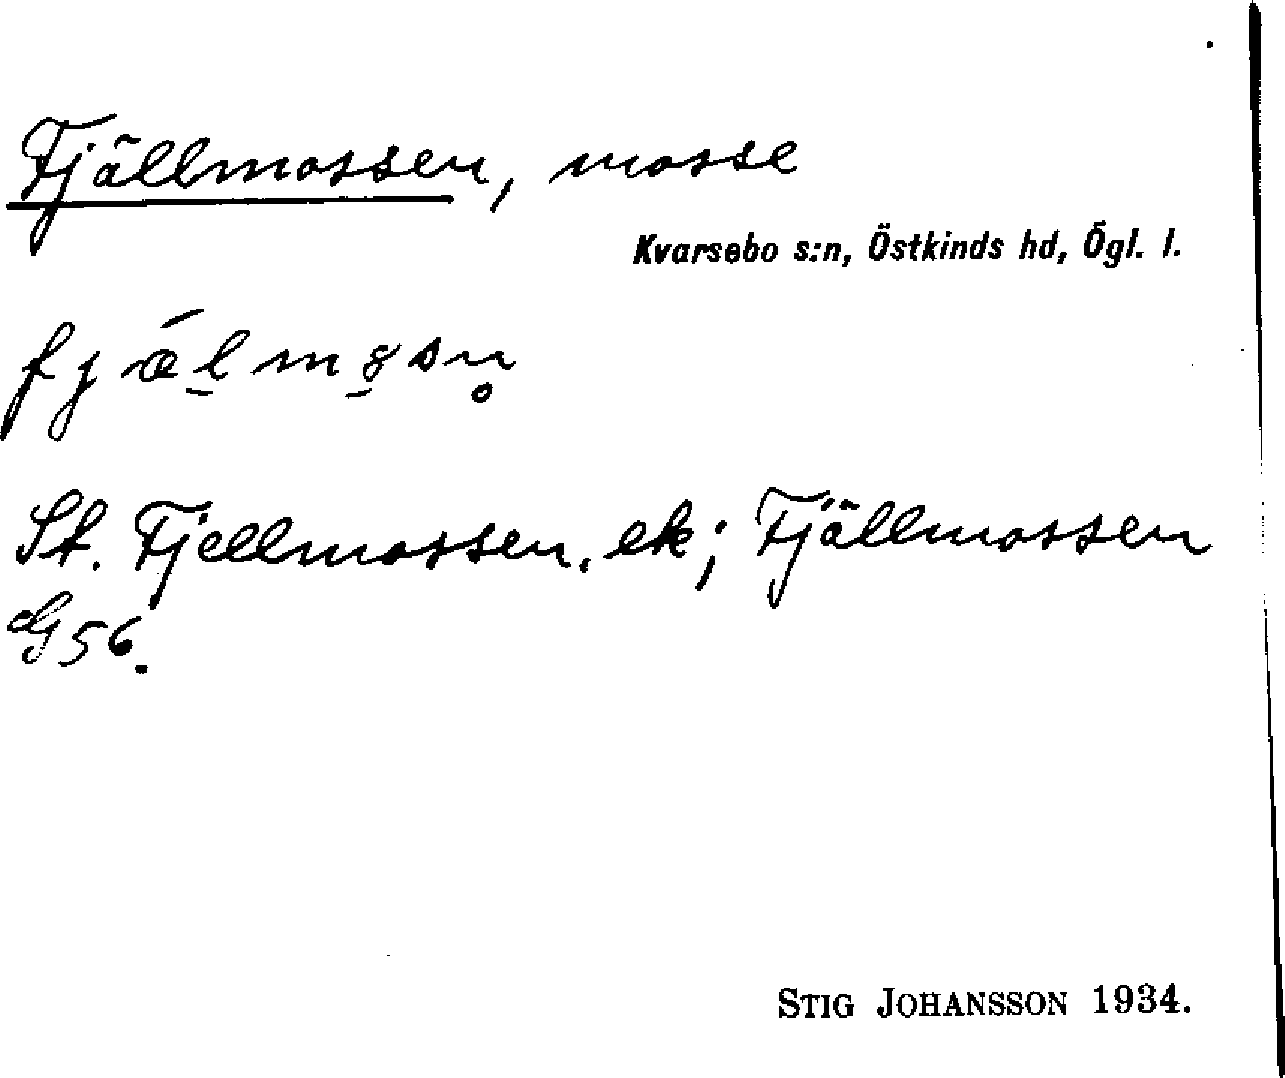 Fjällmossen, mosse
Kvarsebo s:n, Östkinds hd, Ögl. l.
St. Fjellmossen, ek; Fjällmossen
G 56.
STIG JOHANSSON 1934.